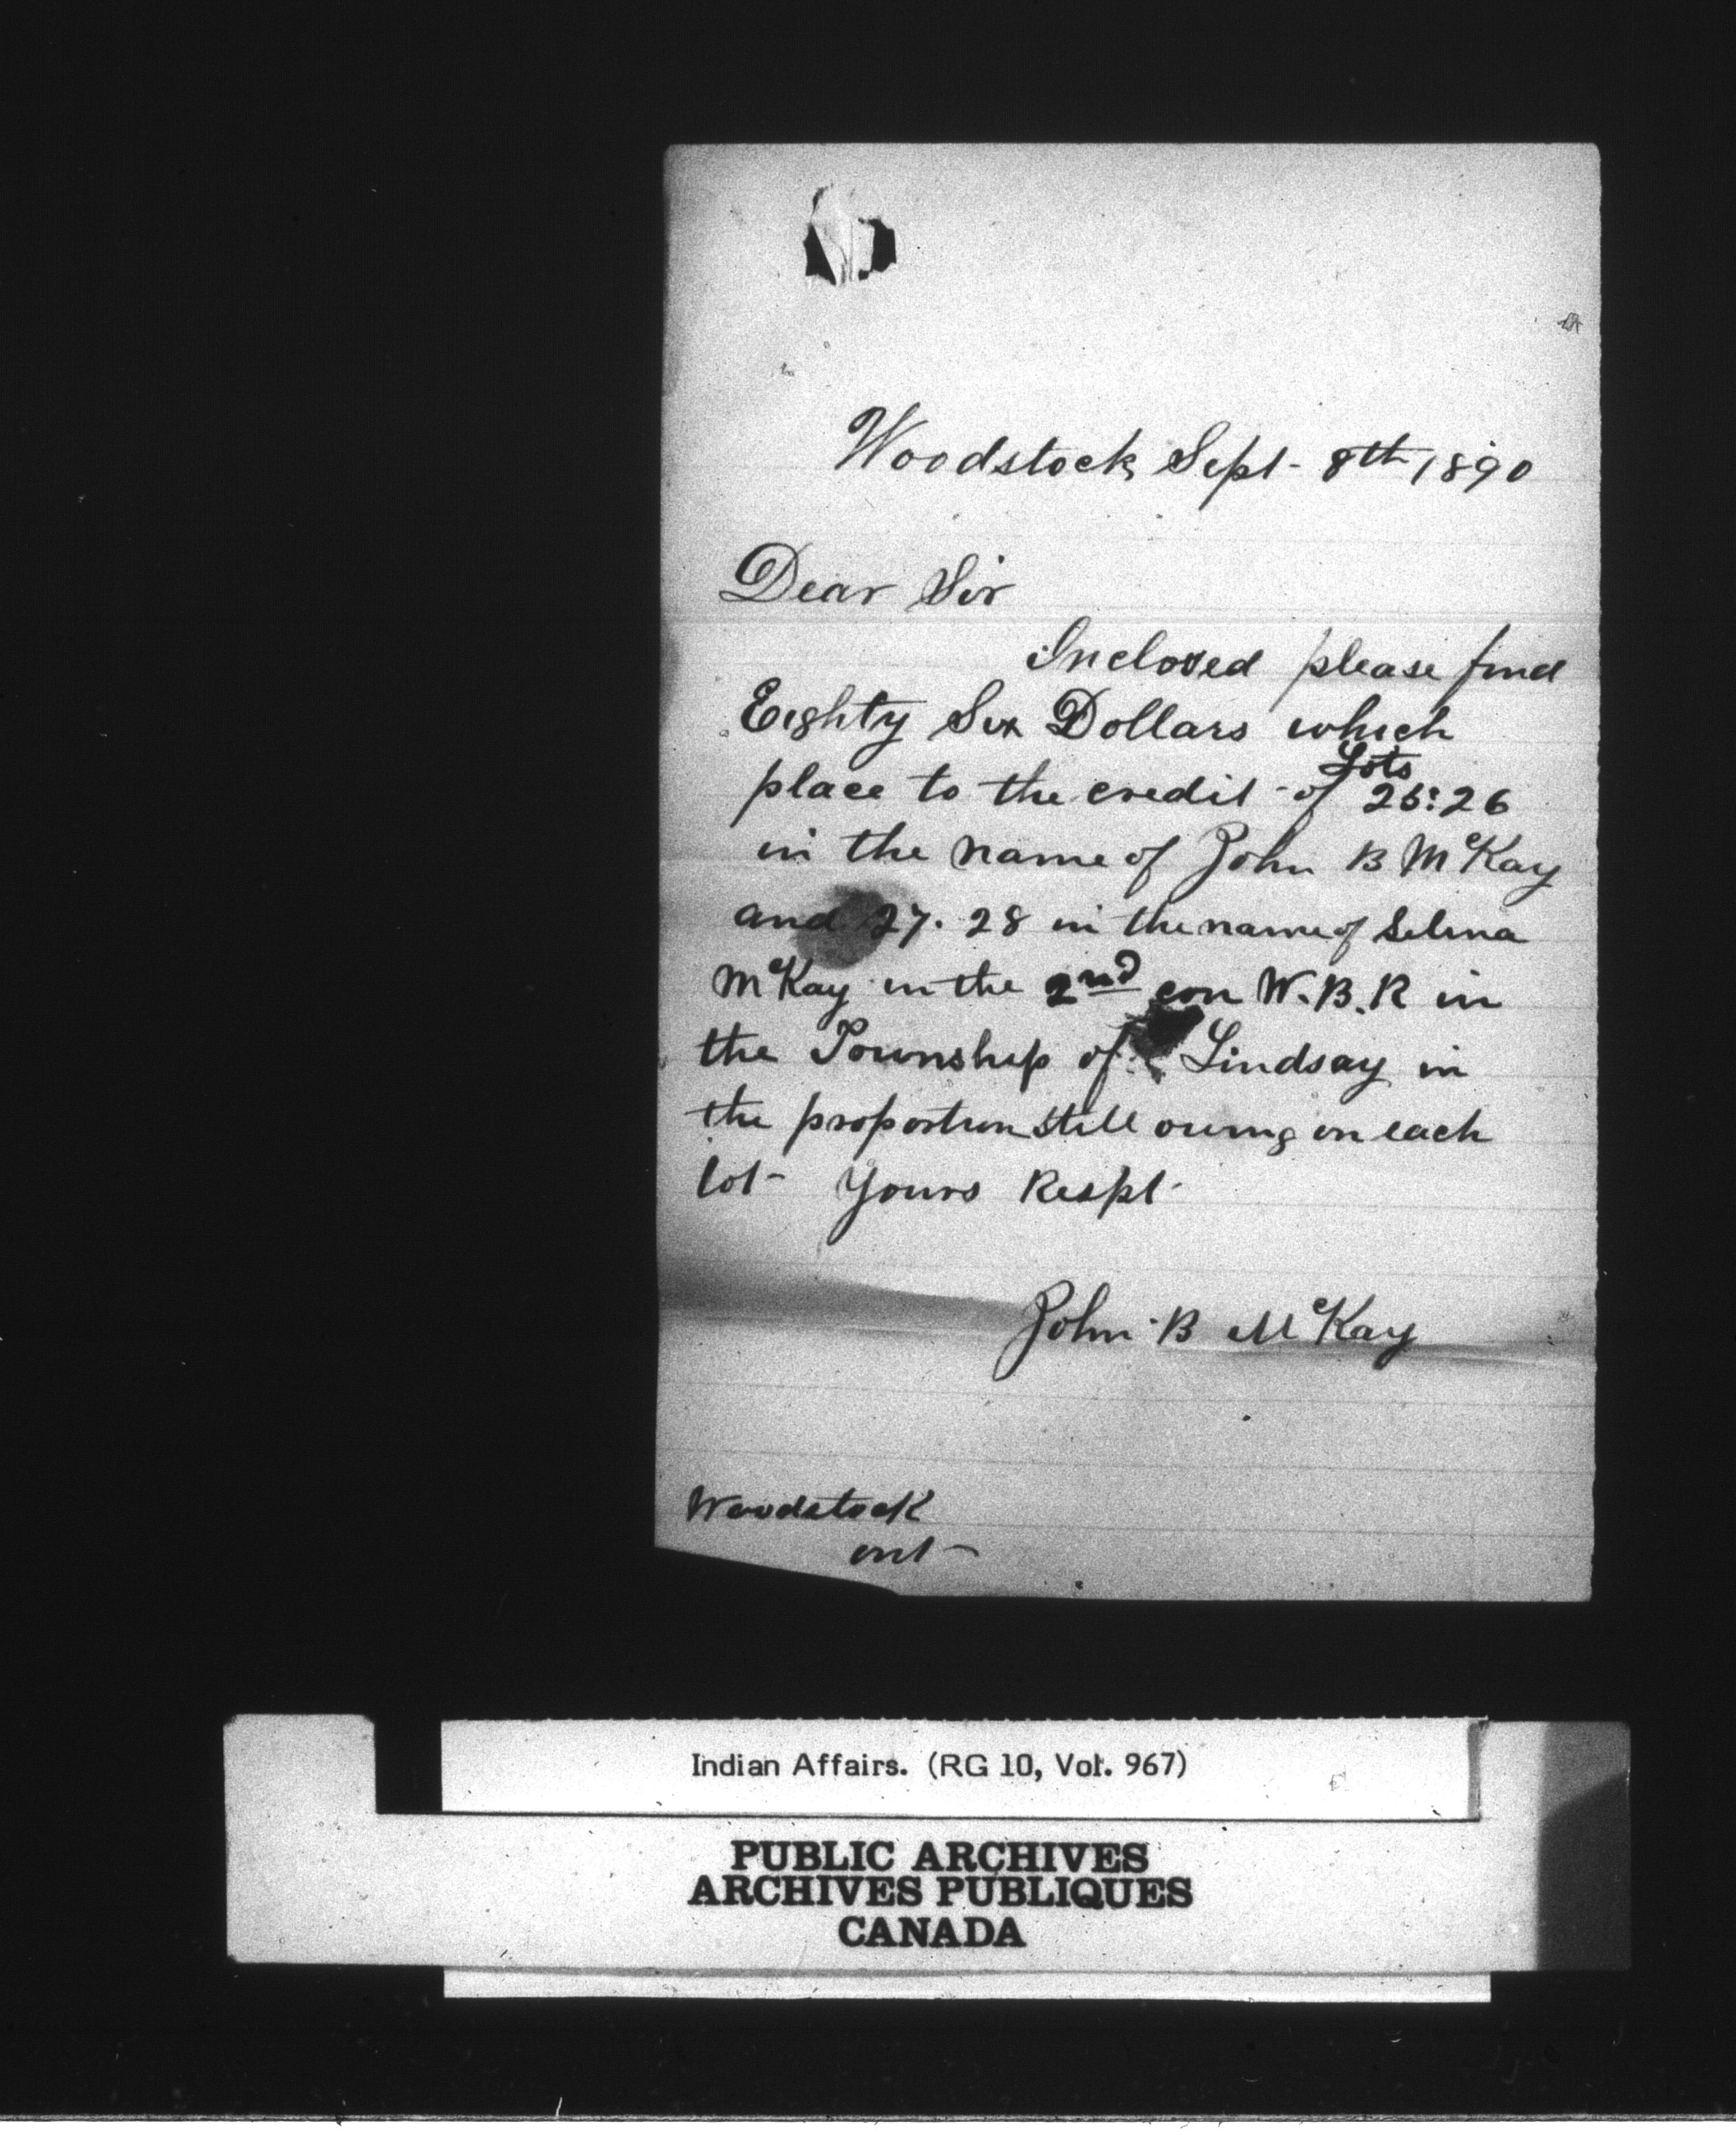 Woodstock Sept - 8th 1890
Dear Sir
Inclosed please find
Eighty Six Dollars which
place to the credit of Lots 25:26
in the name of John B McKay
and 27. 28 in the name of Selina
McKay in the 2nd con W.B.R in
the Township of Lindsay in
the proportion still owing on each
lot - Yours Respt -
John B McKay
Woodstock
ont -
Indian Affairs. (RG 10, Vol. 967)
PUBLIC ARCHIVES
ARCHIVES PUBLIQUES
CANADA